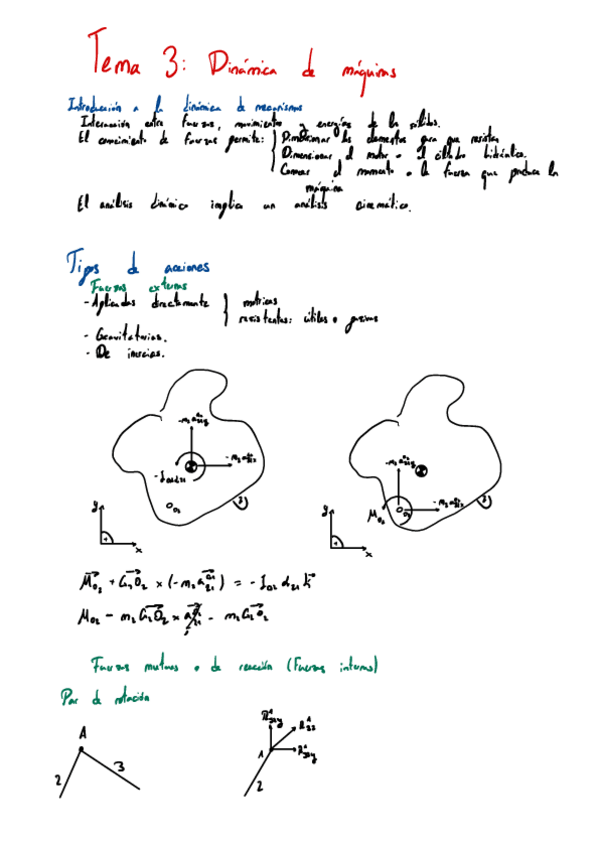 Tema 3: Dinámica de máquinas
Introducción a la dinámica de mecanismos
Interacción entre fuerzas, movimientos y energías de los sólidos.
El conocimiento de fuerzas permite: Dimensionar los elementos para que resistan
Dimensionar el motor o el cilindro hidráulico.
Conocer el momento o la fuerza que produce la
máquina
El análisis dinámico implica un análisis cinemático.
Tipos de acciones
Fuerzas externas
- Aplicadas directamente motrices
resistentes: útiles o pasivas
- Gravitatorias.
- De inercias.
y
x
y
x
Fuerzas mutuas o de reacción (Fuerzas internas)
Par de rotación
A
2
3
A
2